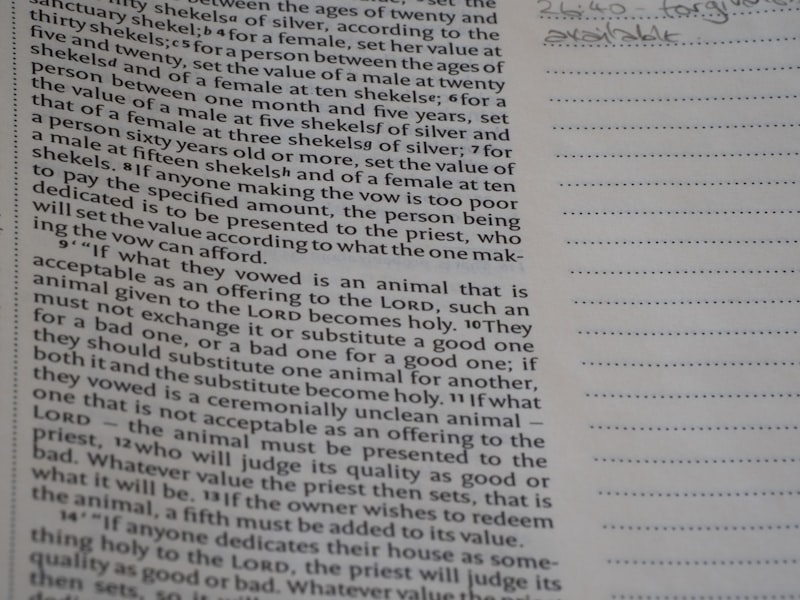 between the ages of twenty and
fifty shekelsa of silver, according to the
sanctuary shekel;b 4 for a female, set her value at
thirty shekels;c 5 for a person between the ages of
five and twenty, set the value of a male at twenty
shekelsd and of a female at ten shekelse; 6 for a
person between one month and five years, set
the value of a male at five shekelsf of silver and
that of a female at three shekelsg of silver; 7 for
a person sixty years old or more, set the value of
a male at fifteen shekelsh and of a female at ten
shekels. 8 If anyone making the vow is too poor
to pay the specified amount, the person being
dedicated is to be presented to the priest, who
will set the value according to what the one mak-
ing the vow can afford.
9 ‘ “If what they vowed is an animal that is
acceptable as an offering to the LORD, such an
animal given to the LORD becomes holy. 10 They
must not exchange it or substitute a good one
for a bad one, or a bad one for a good one; if
they should substitute one animal for another,
both it and the substitute become holy. 11 If what
they vowed is a ceremonially unclean animal –
one that is not acceptable as an offering to the
LORD – the animal must be presented to the
priest, 12 who will judge its quality as good or
bad. Whatever value the priest then sets, that is
what it will be. 13 If the owner wishes to redeem
the animal, a fifth must be added to its value.
14 ‘ “If anyone dedicates their house as some-
thing holy to the LORD, the priest will judge its
quality as good or bad. Whatever value the
then sets, so it
26:40 -
available